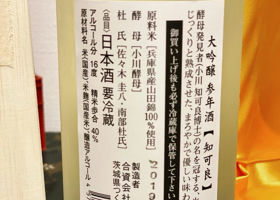 大吟醸 参年酒【知可良】
酵母発見者(小川 知可良博士)の名を冠する
じっくりと熟成させた、まろやかで優しい味わ
御買い上げ後も必ず冷蔵庫で保管して下さい
原料米［兵庫県産山田錦100%使用］
酵 母［小川酵母］
杜 氏［佐々木 圭八・南部杜氏］
2019
製造者
合資会社
茨城県つく
〈品目〉日本酒 要冷蔵
アルコール分 16度 精米歩合 40%
原材料名 米(国産)、米麹(国産米)、醸造アルコール